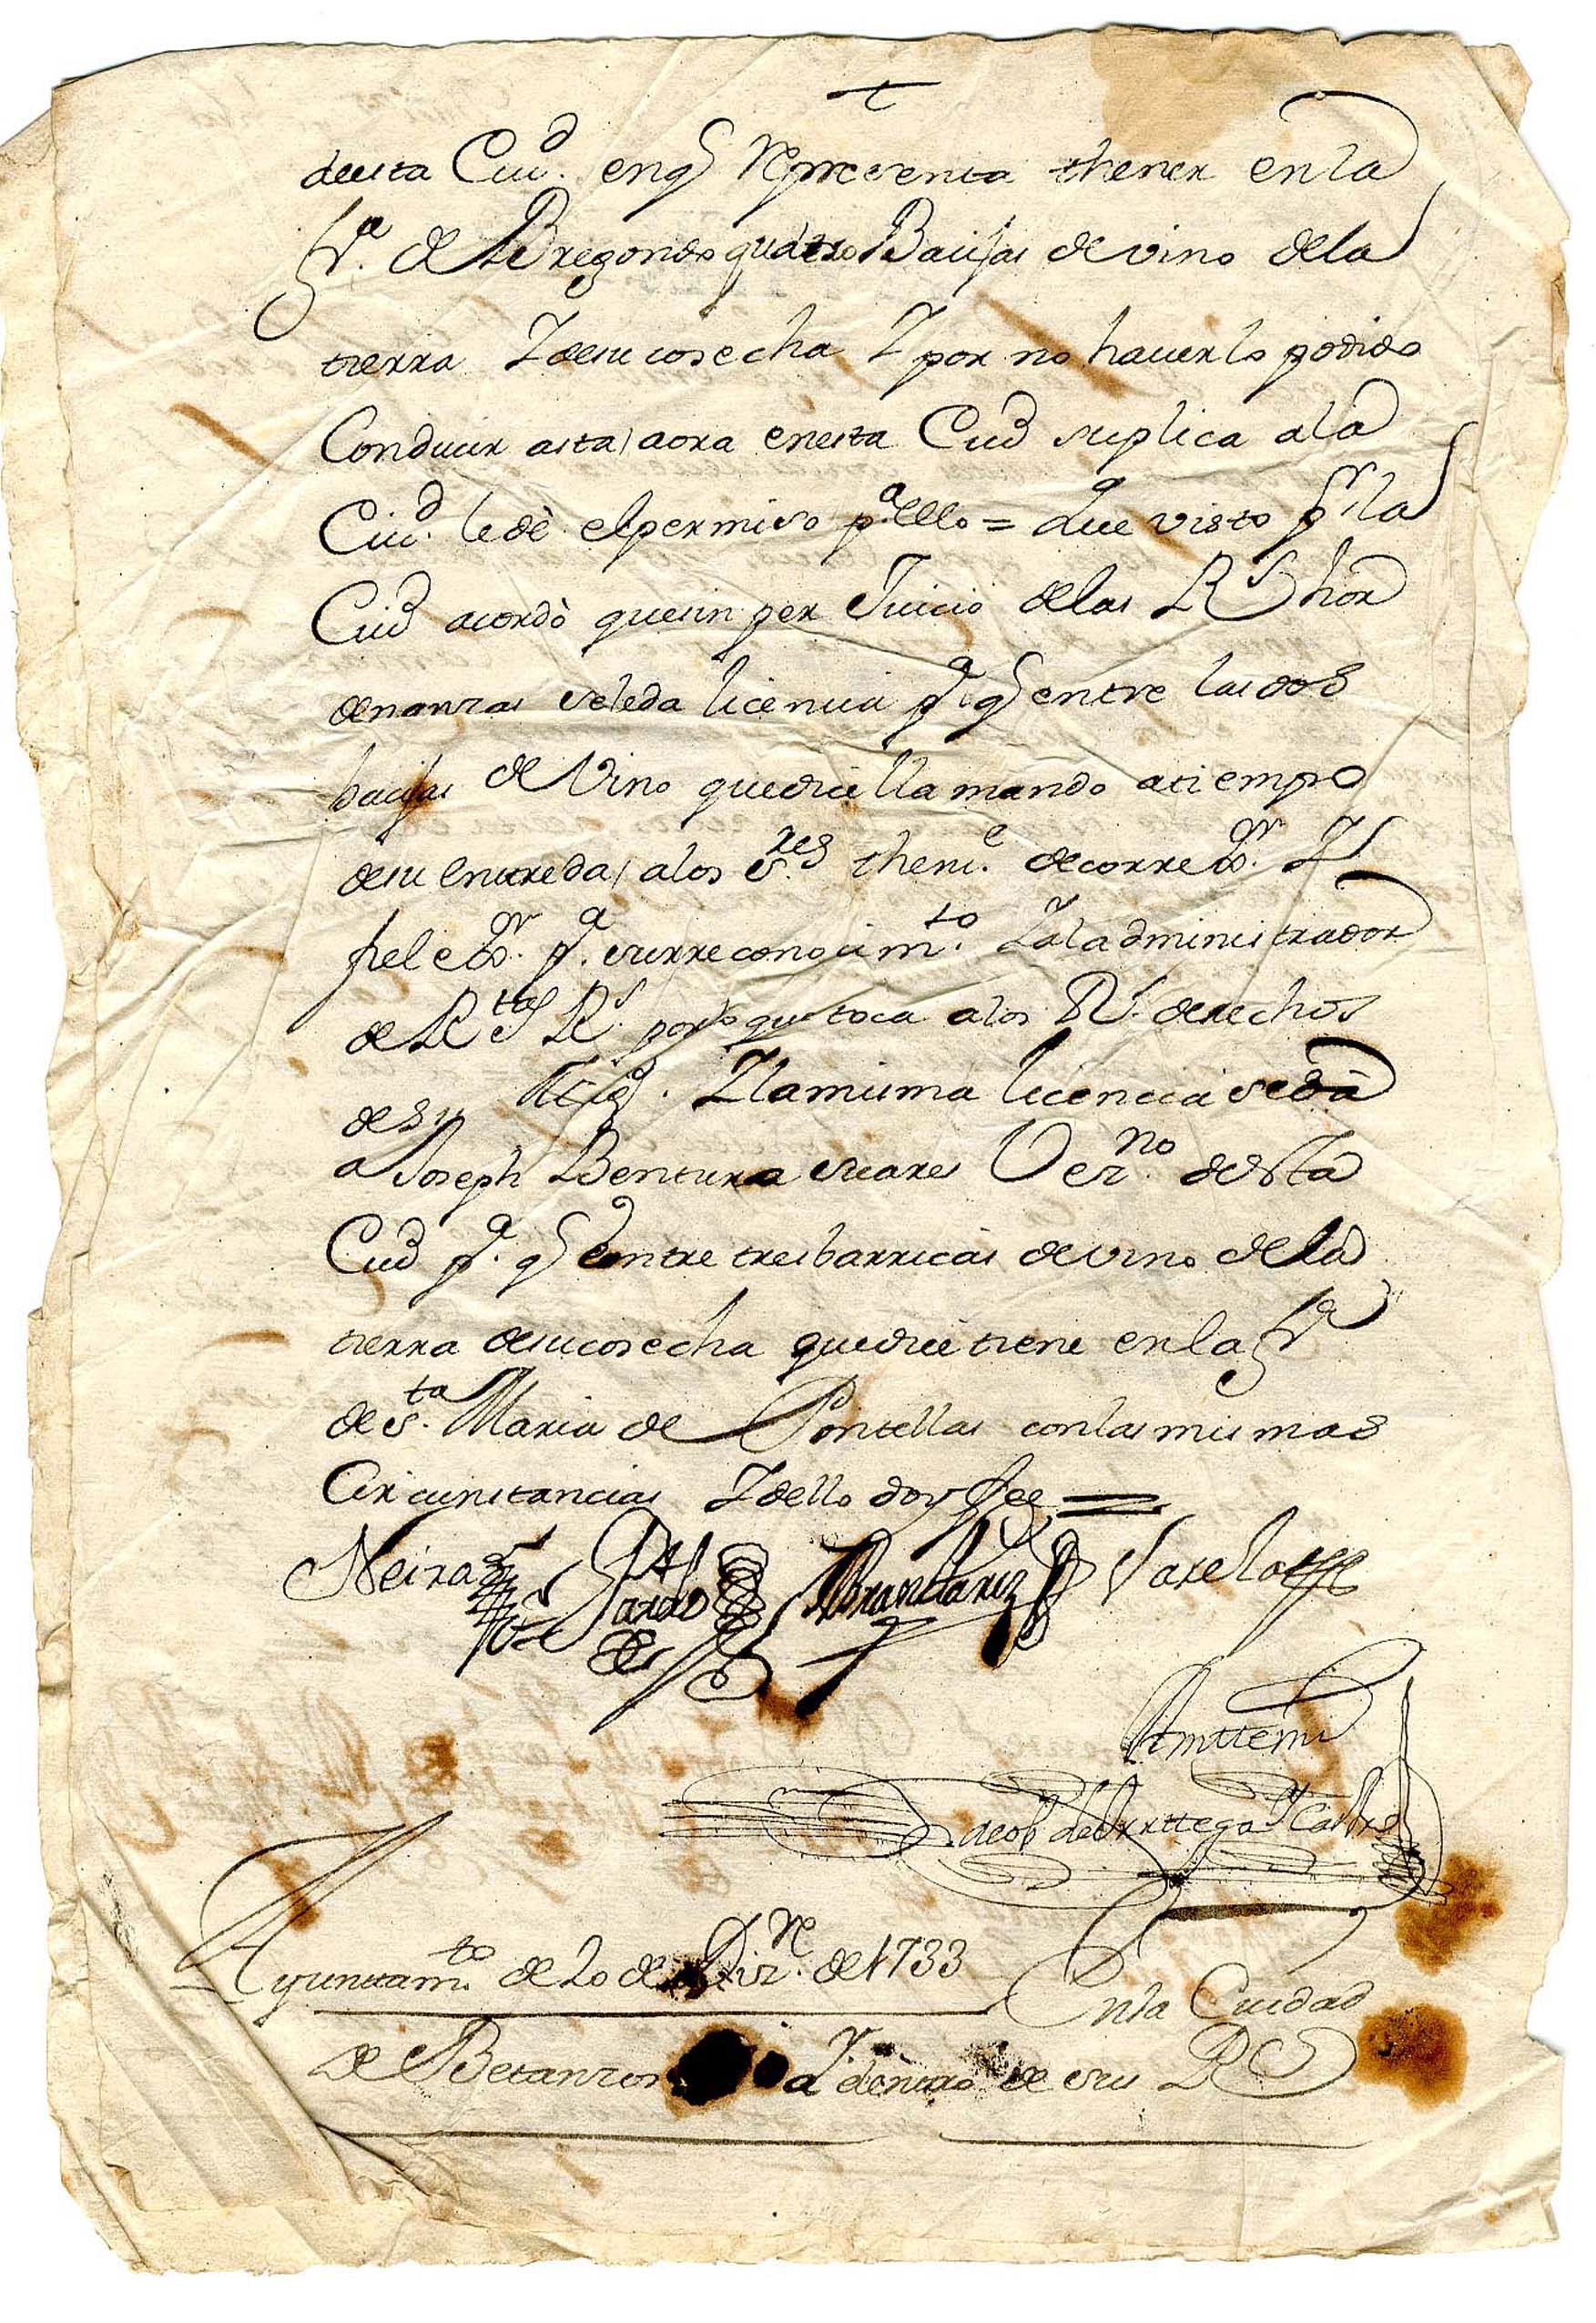 desta Ciud. enq representa thener enla
fra. de Bregondo quatro Baijas de vino dela
tierra Y desu cosecha Y por no hauerlo podido
Conducir asta aora enesta Ciud suplica ala
Ciud. le dè elpermiso pa. ello = Que visto pr la
Ciud acordò quesin per Juicio delas Rs hor
denanzas seleda licencia pa q entre las dos
baijas de Vino quedice llamando atiempo
desu entrada alos sres. thente. decorregor. Y
fiel egor. pa. surreconocimto. Y aladministrador
de Rtas Rs. porlo que toca alos Rs. derechos
desu Ciud. Y lamisma licencia sedà
a Joseph Bentura suares Vezno. desta
Ciud pa. q entre tres barricas devino dela
tierra desucosecha quedice tiene enla fra
de sta. Maria de Pontellas conlas mismas
Circunstancias Y dello doy fee =
Neira Pardo Brandariz Varela
Antte mi
Jacob de Orttega Y Castro
Ayuntamto. de 20 de Dizre. de 1733
Enla Ciudad
de Betanzos a Y dentro de sus Rs